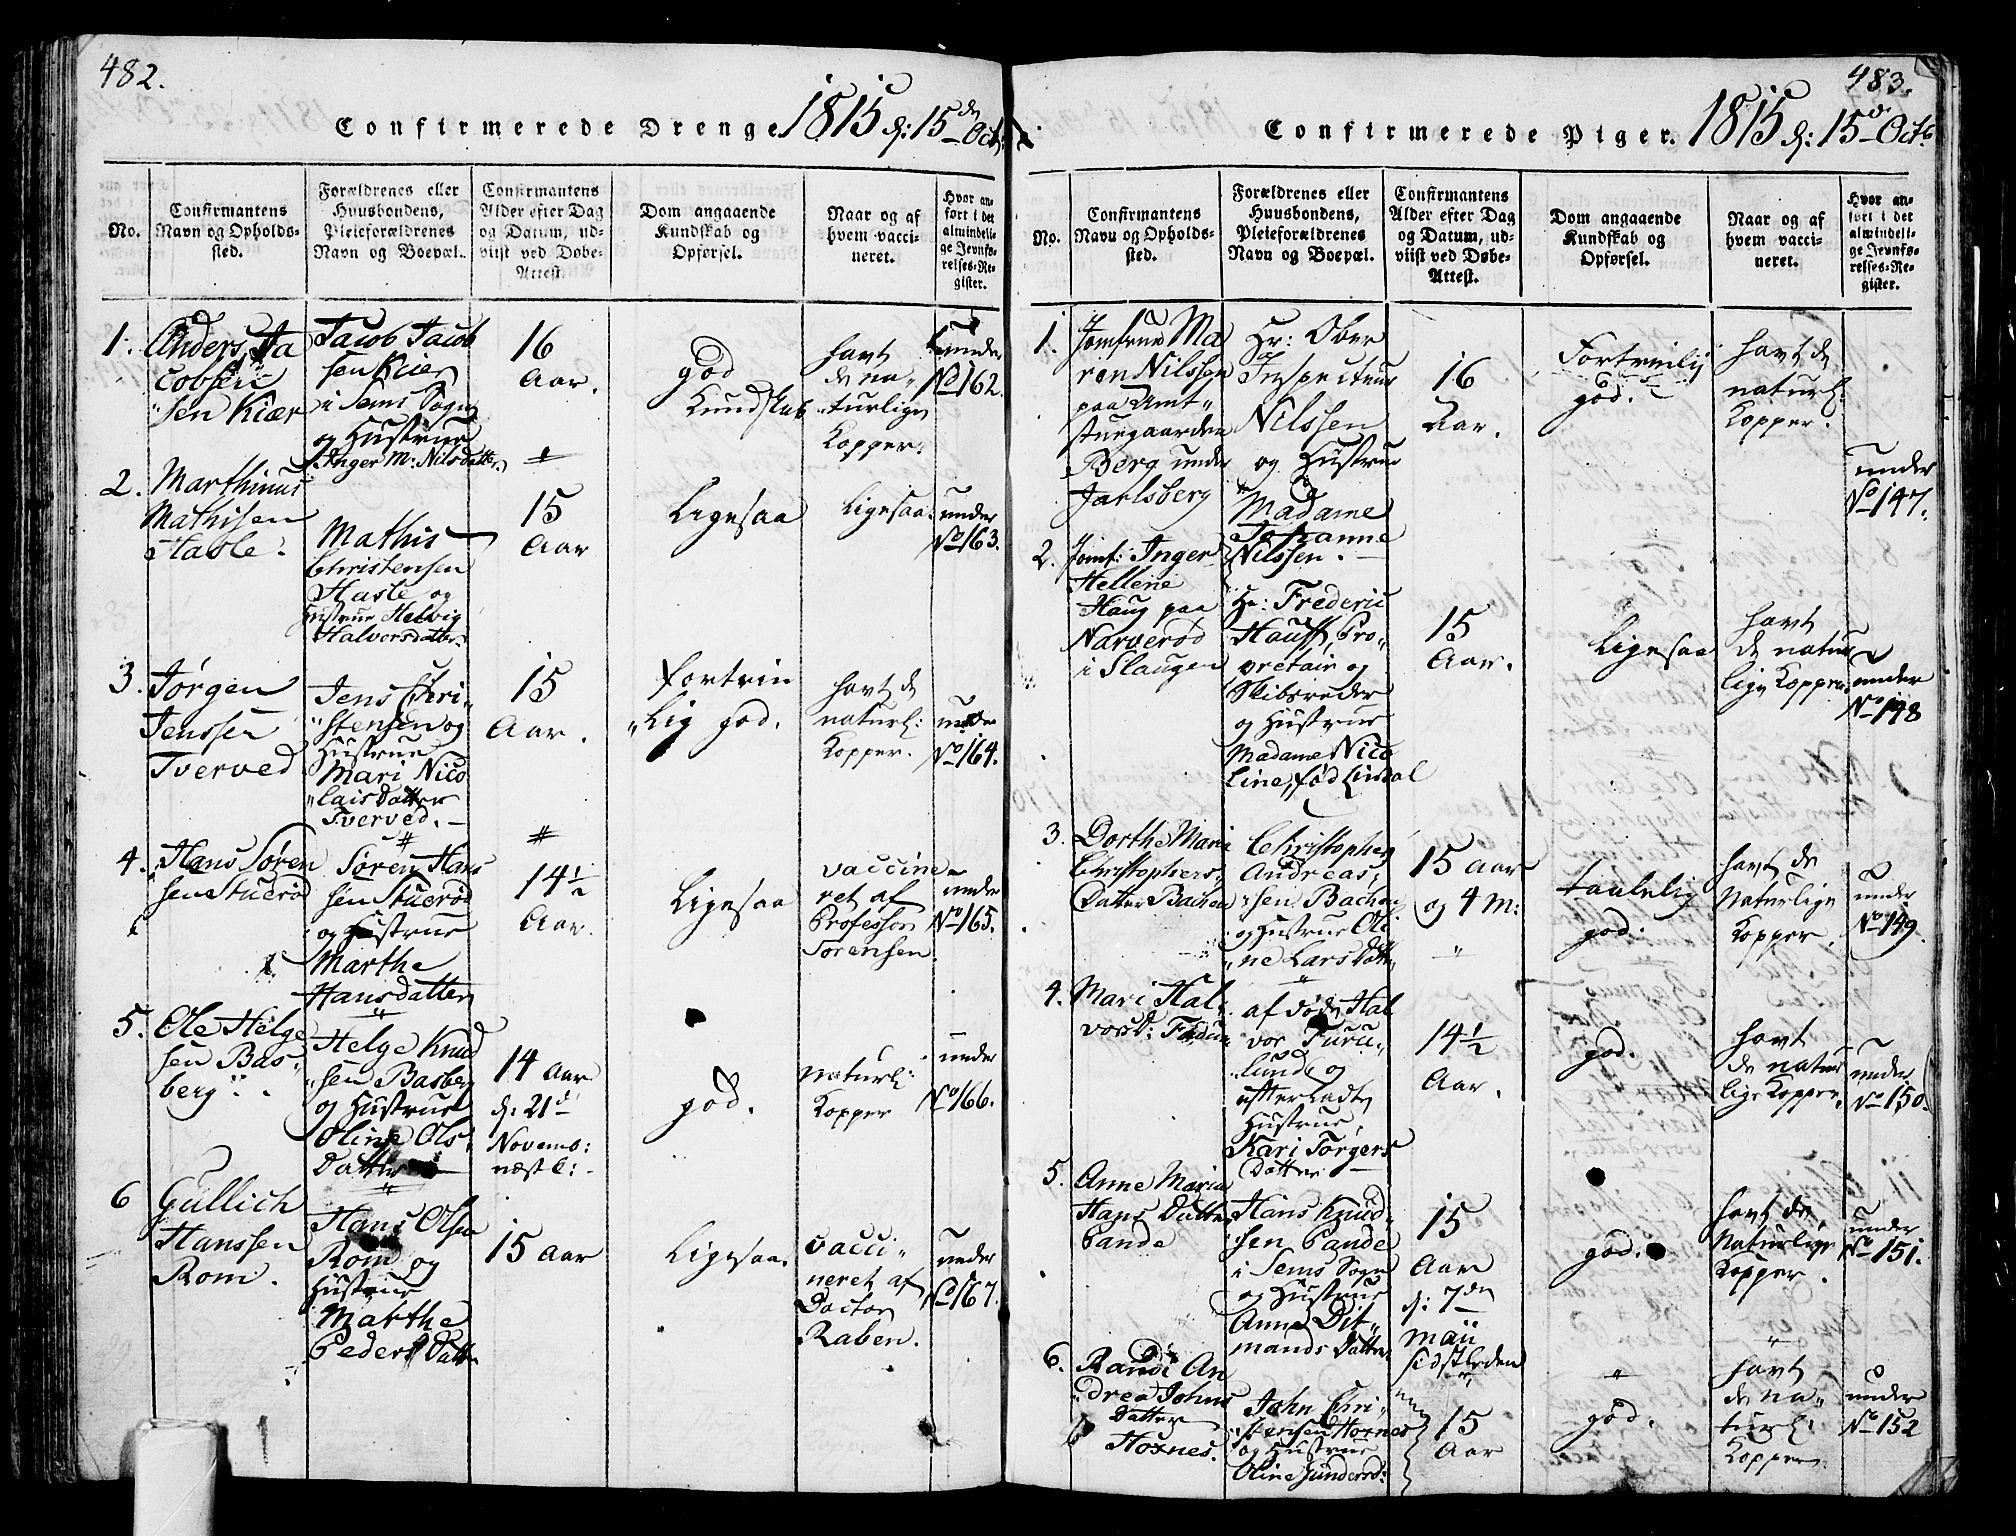 482.
Confirmerede Drenge 1815 d: 15de Octb.
No.
Confirmantens
Navn og Opholds-
sted.
Forældrenes eller
Huusbondens,
Pleieforældrenes
Navn og Boepæl.
Confirmantens
Alder efter Dag
og Datum, ud-
viist ved Døbe-
Attest.
Dom angaaende
Kundskab og
Opførsel.
Naar og af
hvem vacci-
neret.
Hvor an-
ført i det
almindeli-
ge Jevnfø-
relses-Re-
gister.
1.
Anders Ja
cobsen
sen Kiær
Jacob Jacob
sen Kier
i Sems Sogn
og Hustrue
Inger M: Nilsdatter
16
Aar.
god
Kundskab
havt
de na-
turlige
Kopper.
under
No 162.
2.
Marthinus
Mathisen
Hasle.
Mathis
Christensen
Hasle og
Hustrue Helvig
Halvorsdatter
15
Aar
Ligesaa
Ligesaa.
under
No 163.
3.
Jørgen
Jenssen
Tverved
Jens Chri-
stensen og
Hustrue
Mari Nico
laisDatter
Tverved.
15
Aar.
Fortrin
lig god.
havt de
naturl:
Kopper.
under
No 164.
4.
Hans Søren
sen Stuerød
Søren Hans
sen Stuerød
og Hustrue
Marthe
Hansdatter
14½
Aar.
Ligesaa
vaccine-
ret af
Professor
Sørensen.
under
No 165.
5.
Ole Helge
sen Bas-
berg
Helge Knud
sen Basberg
og Hustrue
Oline Ols-
Datter
14 Aar
d: 21de
Novemb:
næstl:
god.
naturl:
Kopper
under
No 166.
6
Gullich
Hanssen
Rom.
Hans Olsen
Rom og
Hustrue
Marthe
PedersDatter
15 Aar
Ligesaa.
vacci-
neret af
Doctor
Raben.
under
No 167.
483.
Confirmerede Piger. 1815 d: 15de Octb.
No.
Confirmantens
Navn og Opholds-
sted.
Forældrenes eller
Huusbondens,
Pleieforældrenes
Navn og Boepæl.
Confirmantens
Alder efter Dag
og Datum, ud-
viist ved Døbe-
Attest.
Dom angaaende
Kundskab og
Opførsel.
Naar og af
hvem vacci-
neret.
Hvor an-
ført i det
almindeli-
ge Jevnfø-
relses-Re-
gister.
1.
Jomfrue Ma
ren Nilssen
paa Amt-
stuegaarden
Berg under
Jarlsberg
Hr: Ober
Inspecteur
Nilssen
og Hustrue
Madame
Johanne
Nilssen.
16
Aar.
Fortrinlig
god.
havt de
naturl:
Kopper.
under
No 147.
2.
Jomf: Inger
Hellene
Haug paa
Narverød
i Slaugen
Hr: Frederic
Hauff, Pro-
prietair og
Skibsreder
og Hustrue
Madame Nico
line, fød Lindal
15
Aar.
Ligesaa
havt
de natur
lige Kopper
under
No 148
3.
Dorthe Marie
Christophers-
Datter Bachen
Christopher
Andreas-
sen Bachen
og Hustrue Oli
ne LarsDatter
15 Aar
og 4 M:
taalelig
god.
havt de
Naturlige
Kopper.
under
No 149.
4.
Mari Hal-
vorsD: Fadum
af døde Hal
vor Furu-
lund, og
efterladte
Hustrue,
Kari Torgers
Datter
14½
Aar.
god.
havt
de natur
lige Kopper
under
No 150.
5.
Anne Maria
Hans Datter
Pande
Hans Knud-
sen Pande
i Sems Sogn
og Hustrue
Anne Dit-
mands Datter
15
Aar
d: 7den
Maii
sidstleden
god.
havt de
Naturlige
Kopper.
under
No 151.
6.
Randi An
drea Johns
Datter
Hoxnes.
John Chri-
stensen Hoxnes
og Hustrue
Oline Gundersd:
15
Aar
god.
havt
de na-
turl:
Kopper.
under
No 152